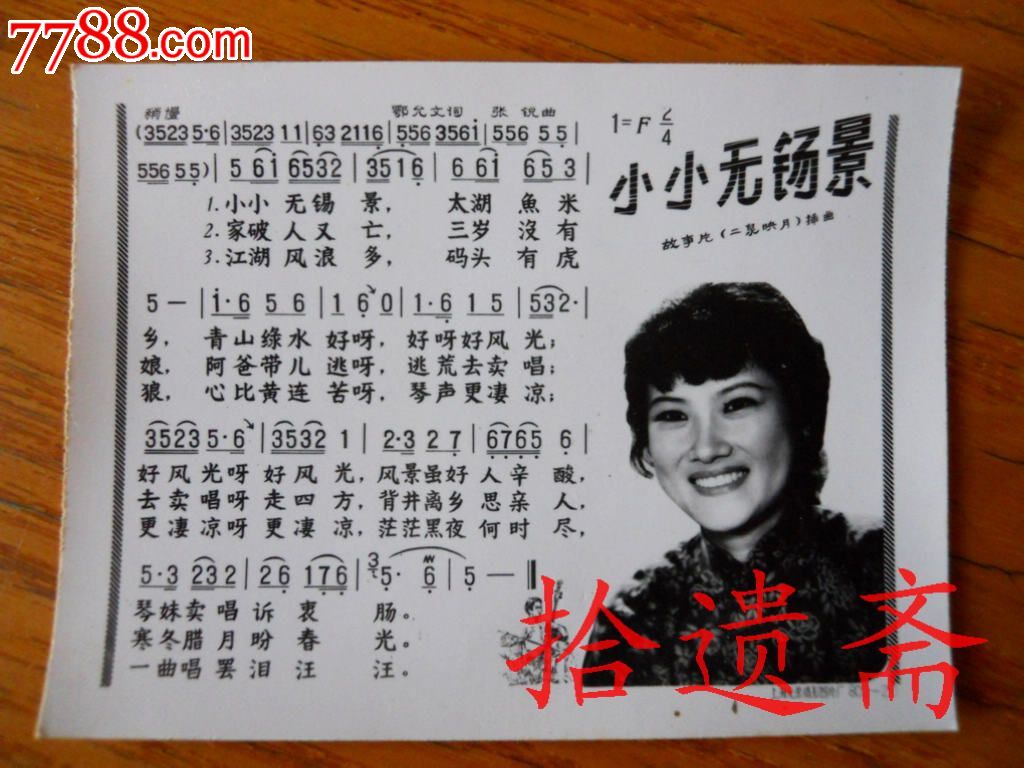 7788.com
稍慢 鄂允文词 张 锐曲
1=F 2/4
小小无锡景
故事片《二泉映月》插曲
(3523 5·6|3523 11|63 2116|556 356i|556 55|
556 55)|5 6i 6532|3516|6 6i 653|
1.小小 无锡 景， 太湖 魚米
2.家破 人又 亡， 三岁 沒有
3.江湖 风浪 多， 码头 有虎
5 —|i·6 5 6|1 6 0|1·6 1 5|532·|
乡， 青山绿水 好呀， 好呀好风 光；
娘， 阿爸带儿 逃呀， 逃荒去卖 唱；
狼， 心比黄连 苦呀， 琴声更凄 凉；
3523 5·6|3532 1|2·3 2 7|6765 6|
好风光呀 好风光，风景虽好 人辛 酸，
去卖唱呀 走四方，背井离乡 思亲 人，
更凄凉呀 更凄凉，茫茫黑夜 何时 尽，
5·3 232|26 176|5· 6|5 —‖
琴妹卖唱诉 衷 肠。
寒冬腊月盼 春 光。
一曲唱罢泪 汪 汪。
拾遗斋